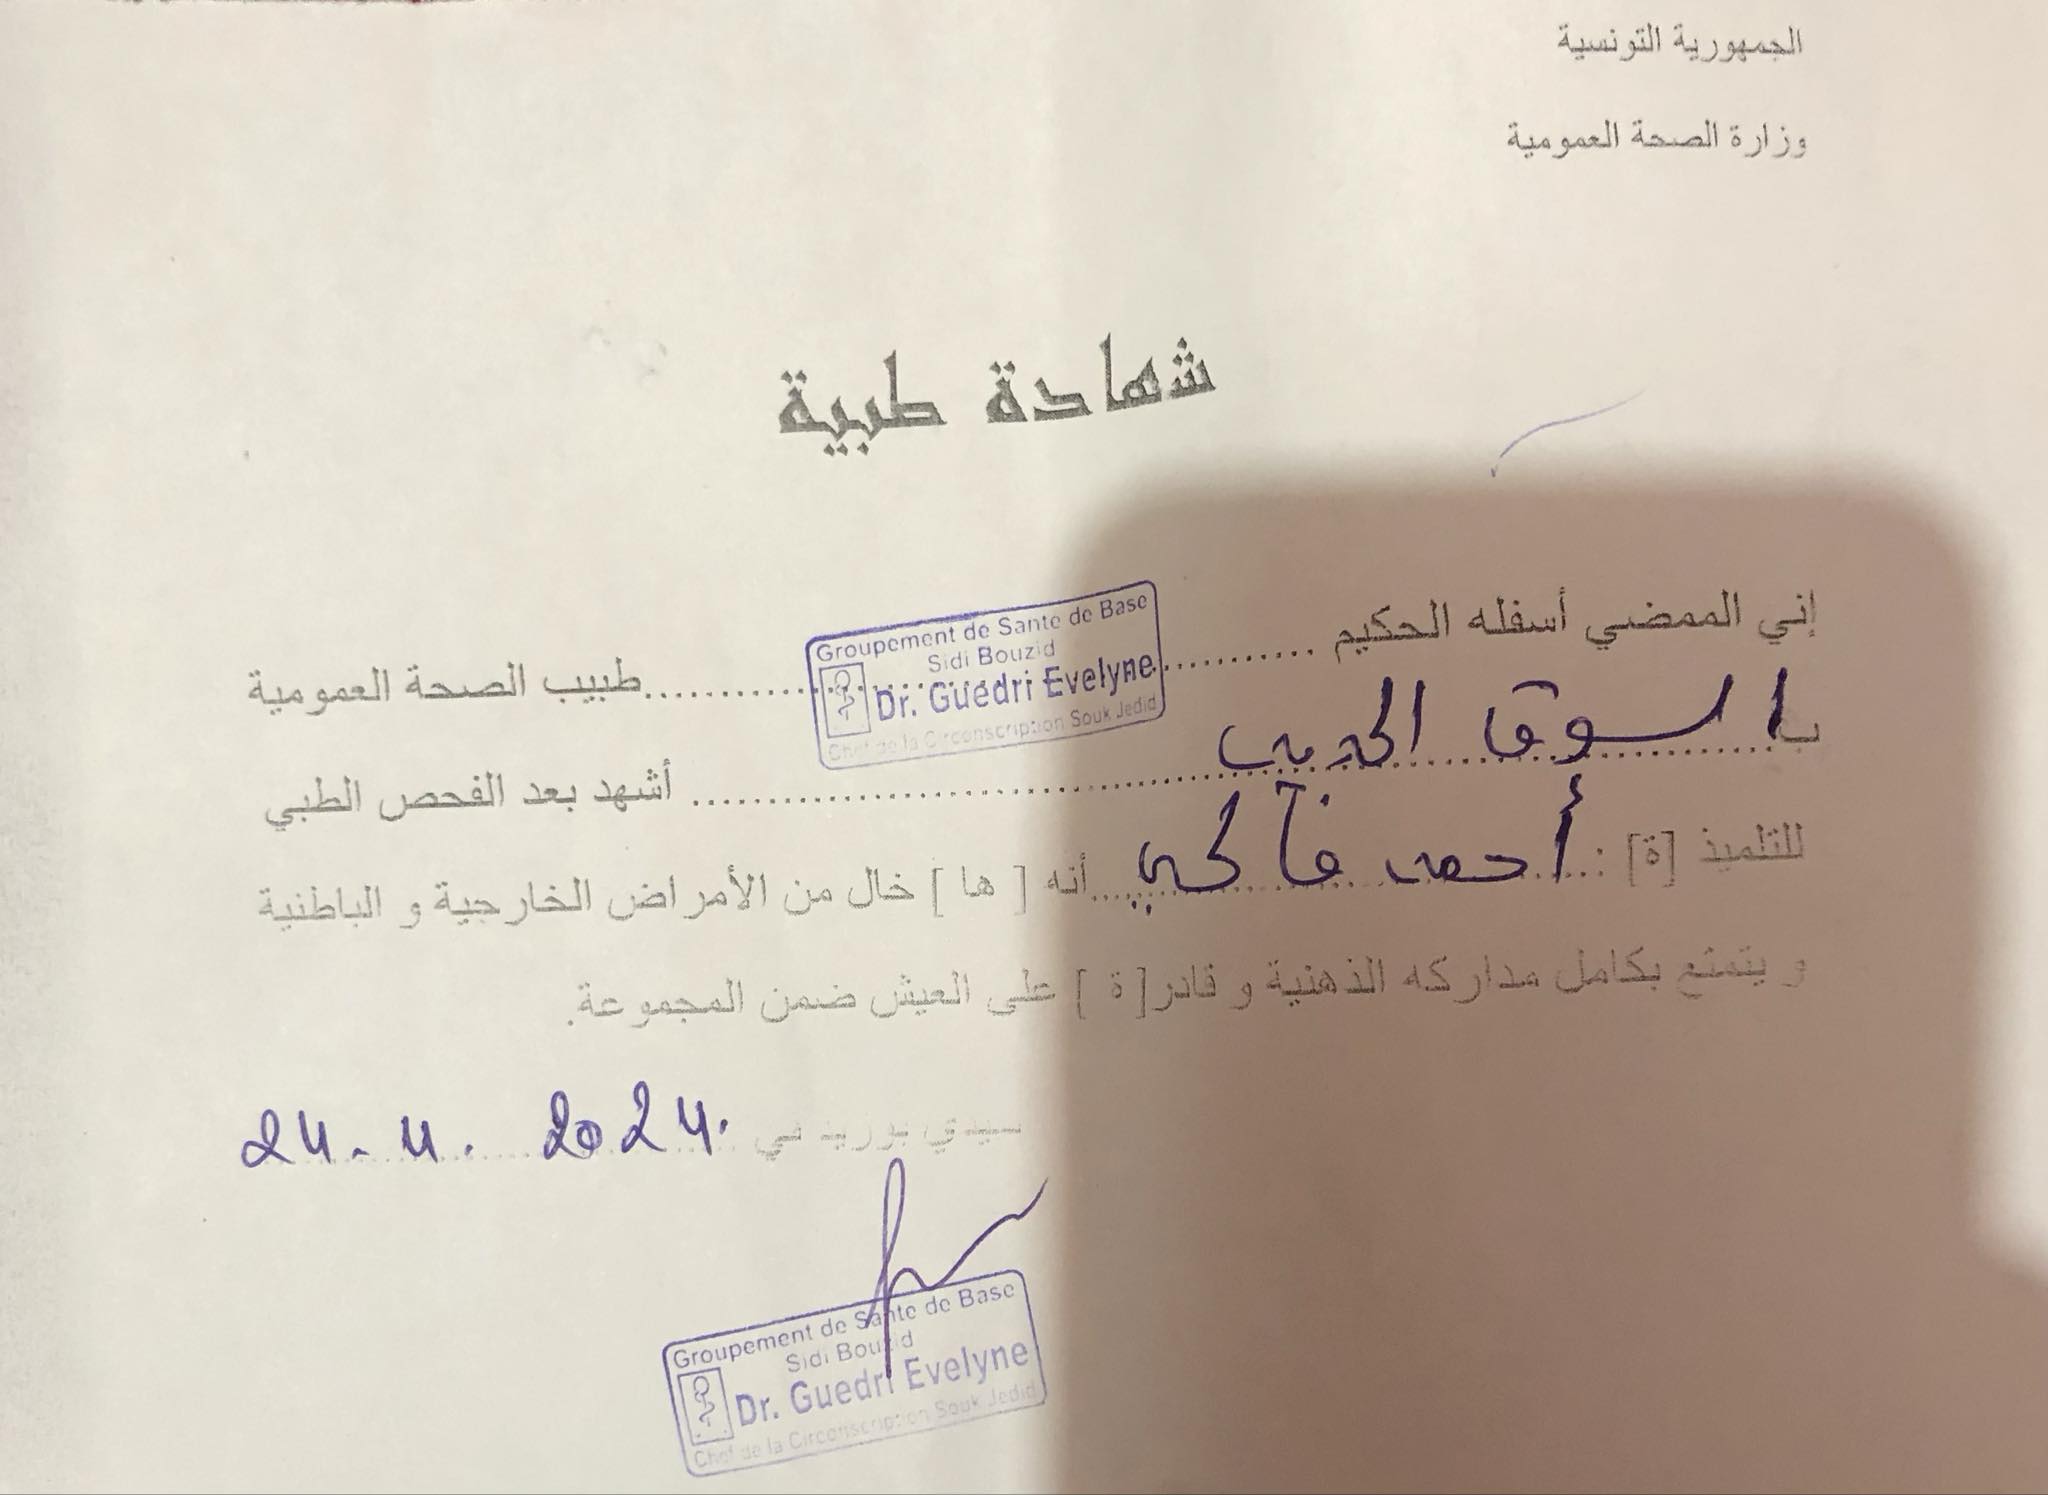 الجمهورية التونسية
وزارة الصحة العمومية
شهادة طبية
إني الممضي أسفله الحكيم .......... طبيب الصحة العمومية
Groupement de Sante de Base
Sidi Bouzid
Dr. Guedri Evelyne
Chef de la Circonscription Souk Jedid
بـ السوق الجديد .......... أشهد بعد الفحص الطبي
للتلميذ [ة] : أحمد فالحي ..... أنه [ ها ] خال من الأمراض الخارجية و الباطنية
و يتمتع بكامل مداركه الذهنية و قادر[ ة ] على العيش ضمن المجموعة.
سيدي بوزيد في 24.4.2024
Groupement de Sante de Base
Sidi Bouzid
Dr. Guedri Evelyne
Chef de la Circonscription Souk Jedid